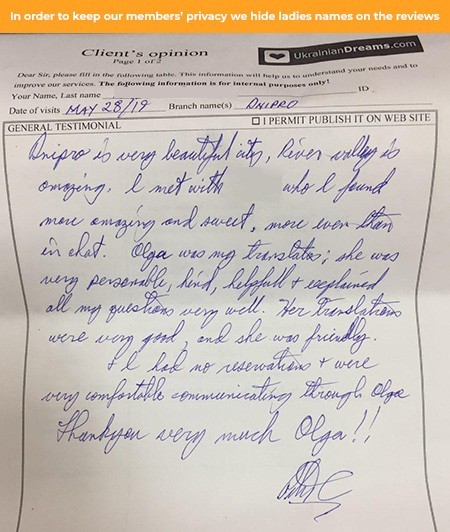 In order to keep our members' privacy we hide ladies names on the reviews
Client's opinion
Page 1 of 2
UkrainianDreams.com
Dear Sir, please fill in the following table. This information will help us to understand your needs and to
improve our services. The following information is for internal purposes only!
Your Name, Last name ID
Date of visits MAY 28/19 Branch name(s) DNIPRO
GENERAL TESTIMONIAL I PERMIT PUBLISH IT ON WEB SITE
Dnipro is very beautiful city, River valley is
amazing. I met with who I found
more amazing and sweet, more even than
in chat. Olga was my translator; she was
very personable, kind, helpfull + explained
all my questions very well. Her translations
were very good, and she was friendly.
+ I had no reservations + were
very comfortable communicating through Olga
Thankyou very much Olga!!